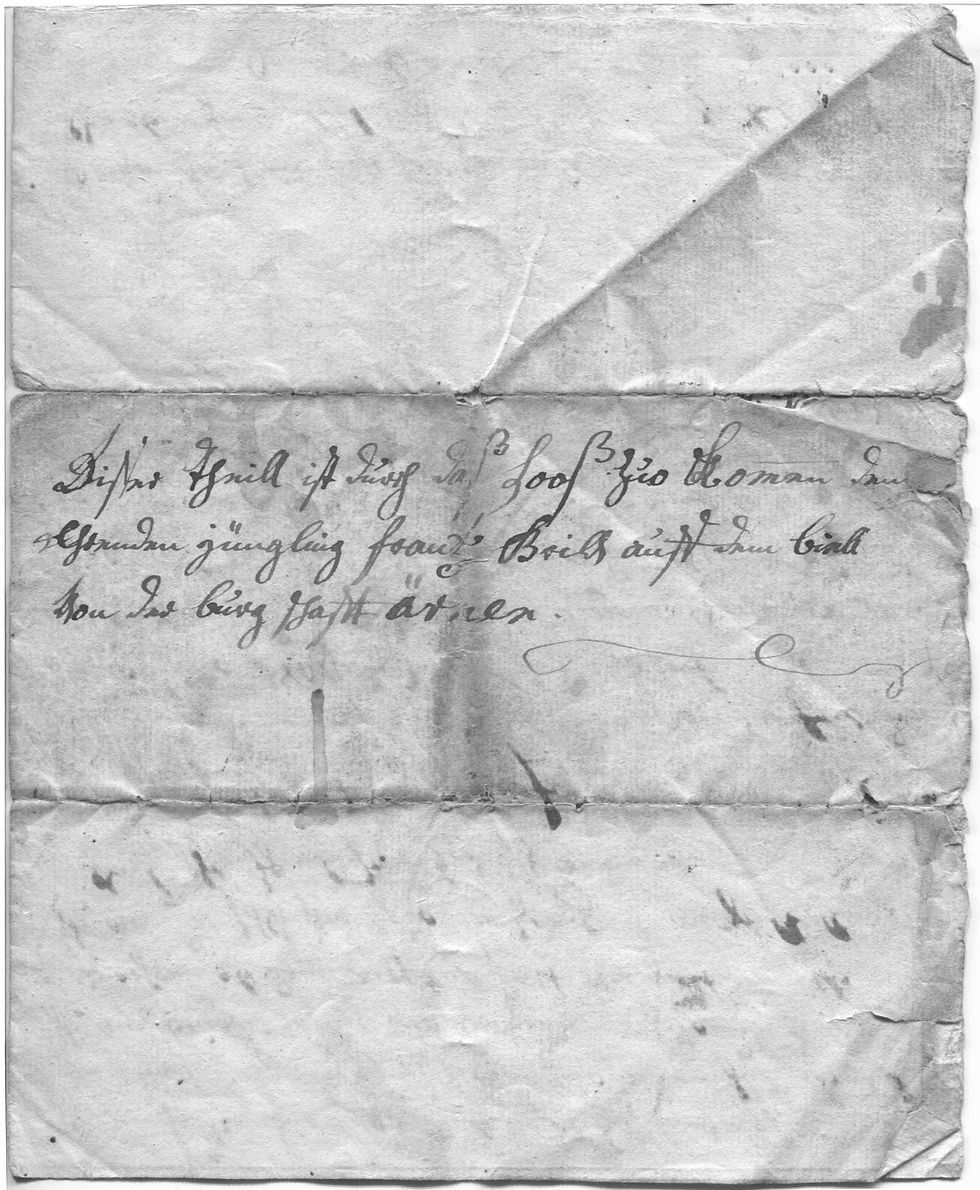 Disser theill ist durch daß looß zuo komen dem
Ehrenden jüngling frantz auff dem biell
von der burgschafft ärnen.